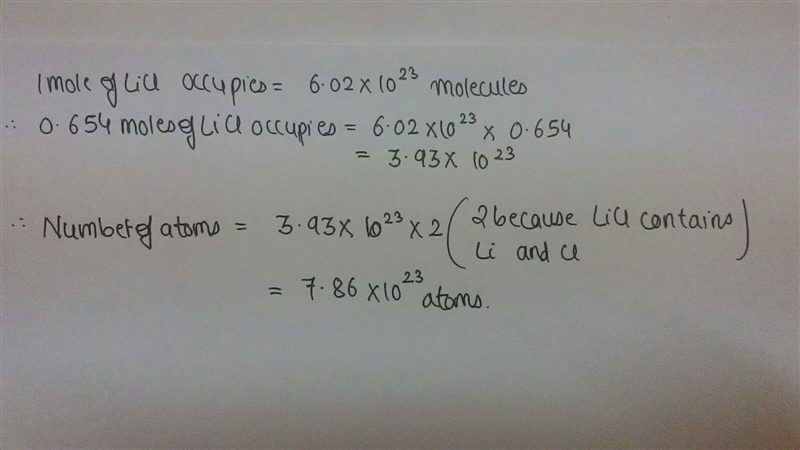 1 mole of LiCl occupies = 6.02 × 10²³ molecules
∴ 0.654 moles of LiCl occupies = 6.02 × 10²³ × 0.654
= 3.93 × 10²³
∴ Number of atoms = 3.93 × 10²³ × 2 ( 2 because LiCl contains
Li and Cl )
= 7.86 × 10²³ atoms.